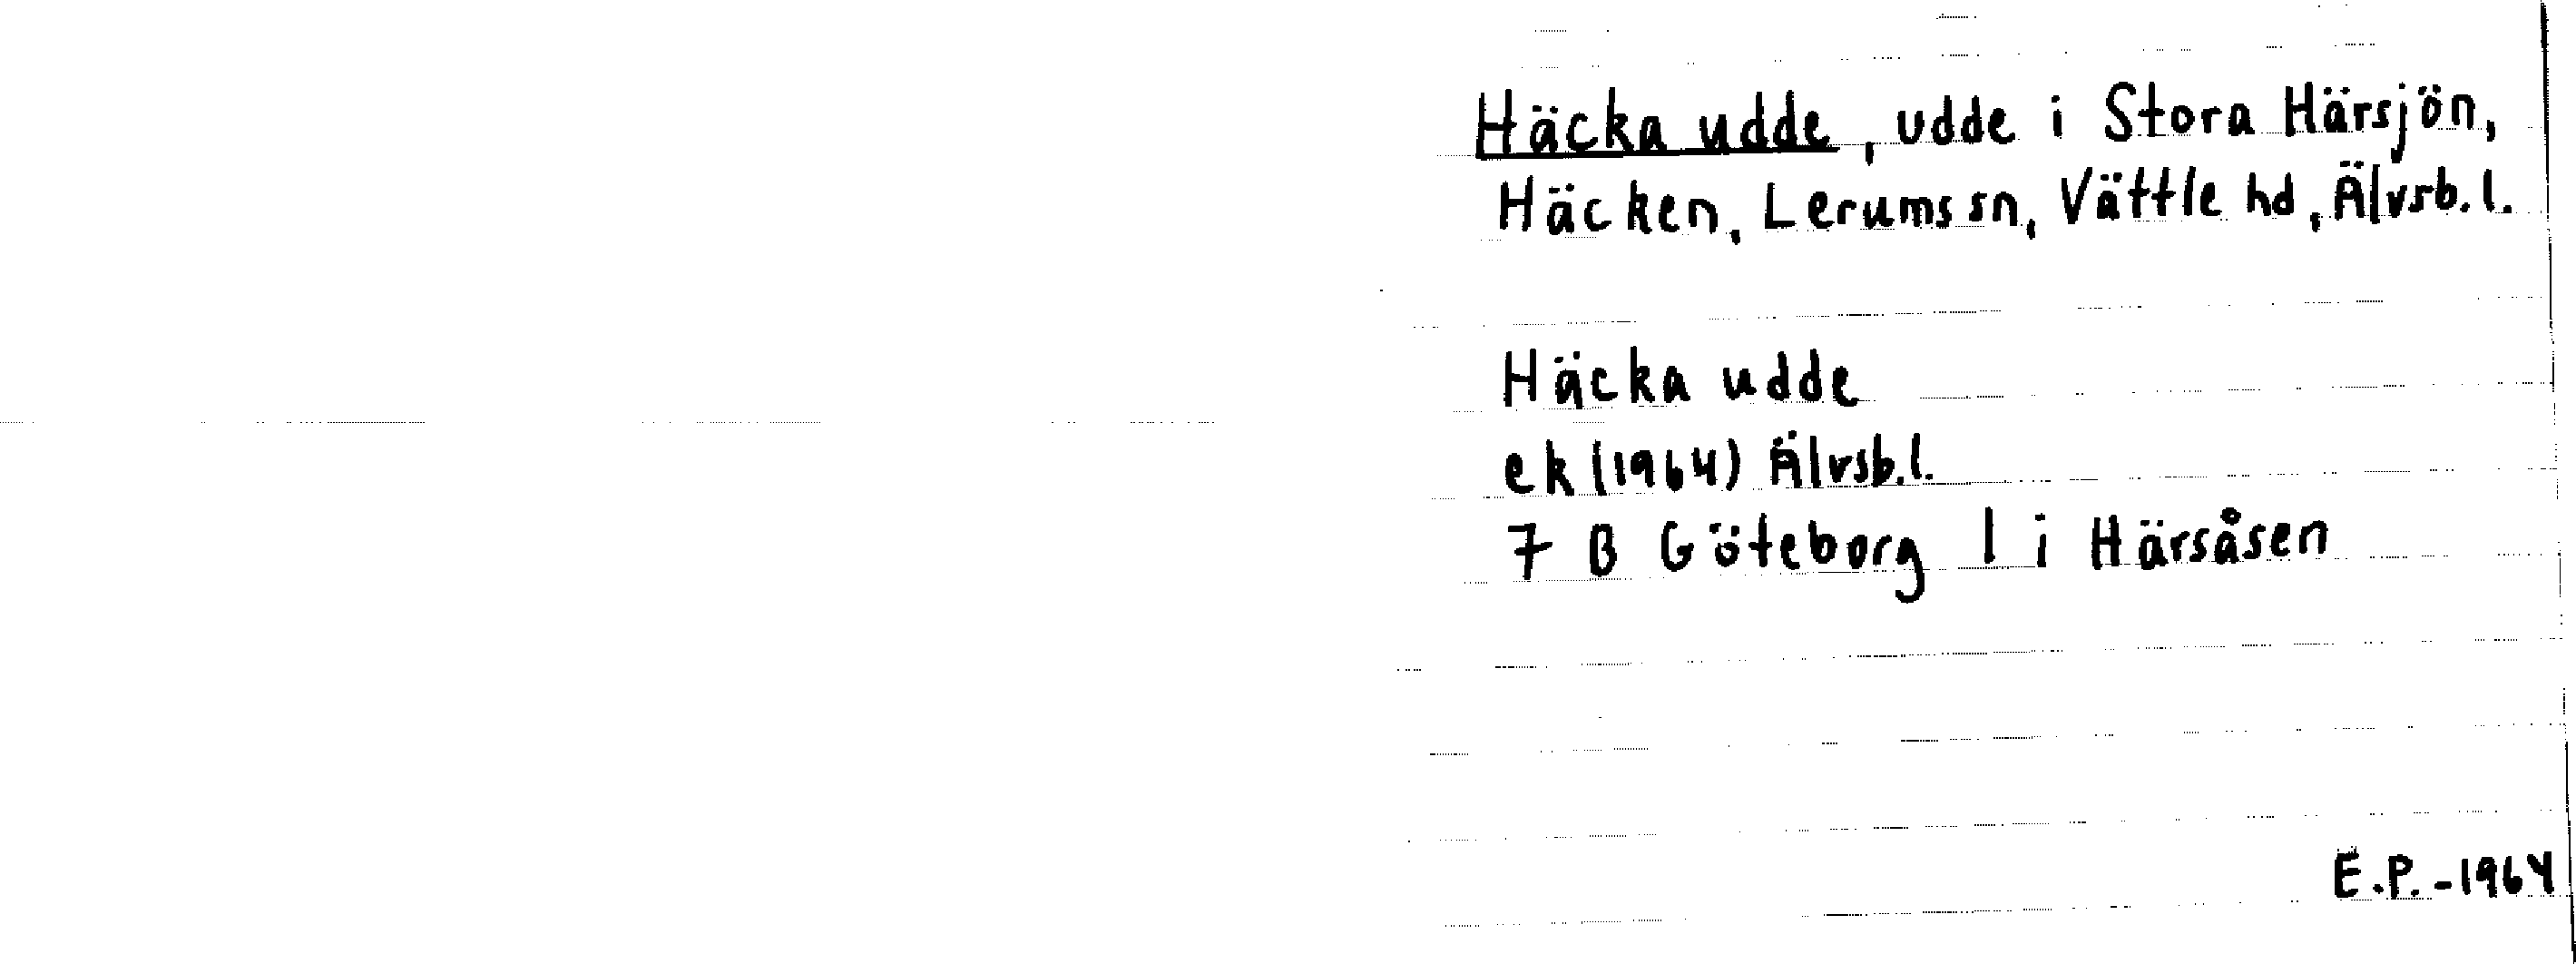 Häcka udde, udde i Stora Härsjön,
Häcken, Lerums sn, Vättle hd, Älvsb. l.
Häcka udde
ek (1964) Älvsb. l.
7 B Göteborg 1 i Härsåsen
E.P. -1964